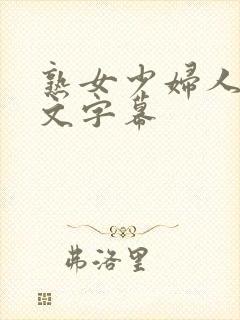 熟女少婦人
文字幕
弗洛里